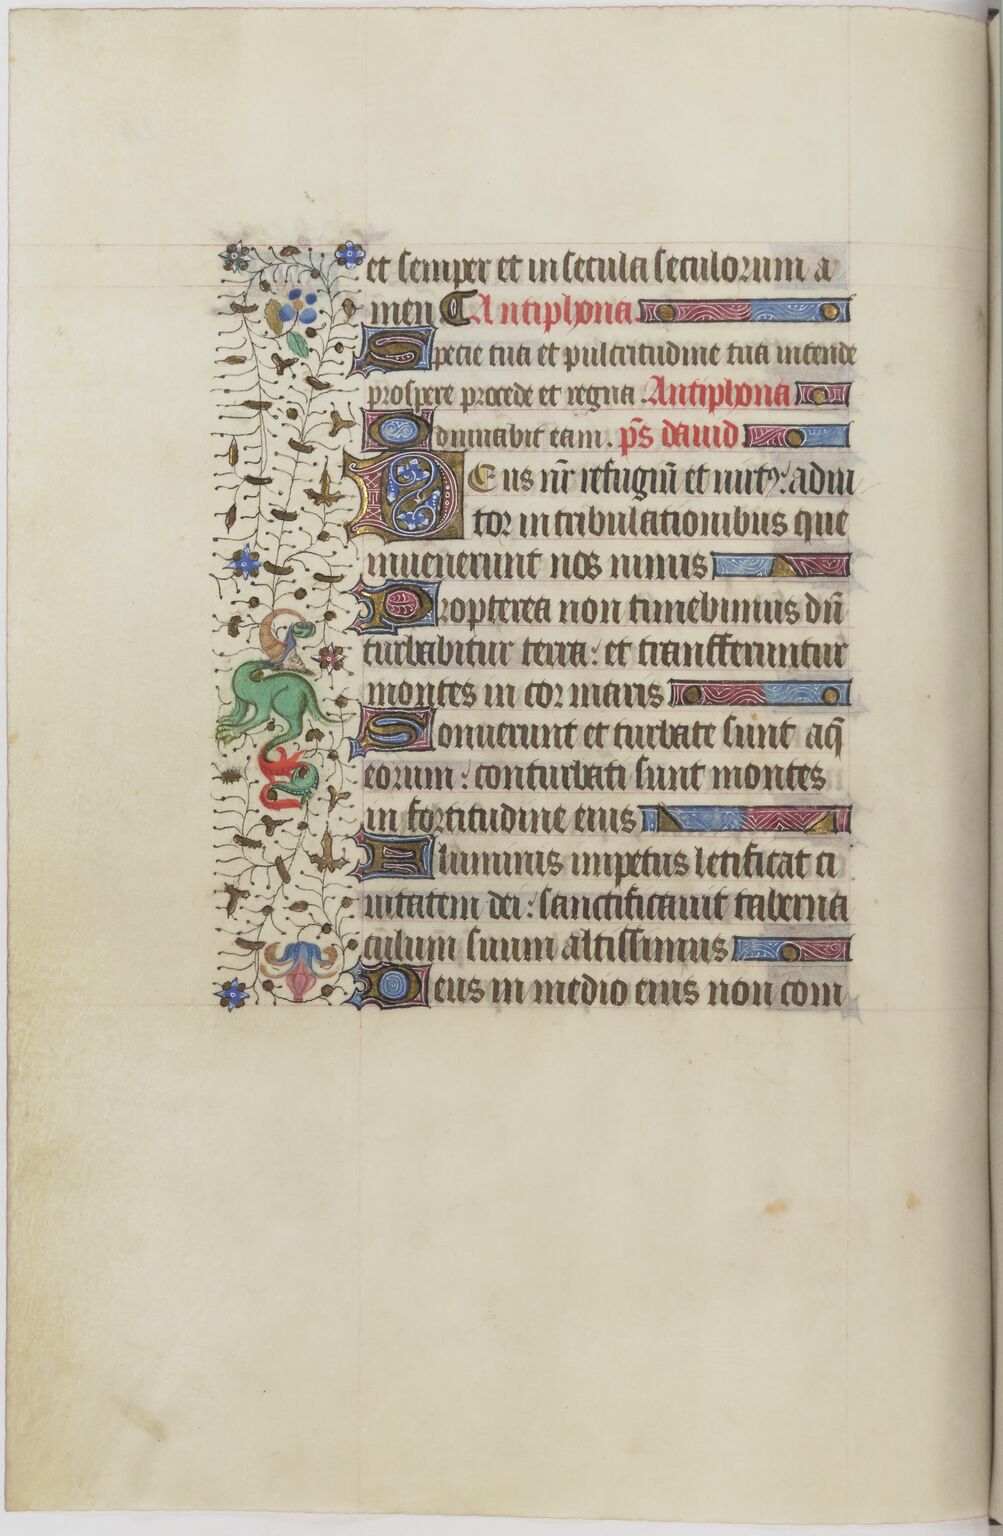 et semper et in secula seculorum a
men Antiphona
Specie tua et pulcritudine tua intende
prospere procede et regna. Antiphona
Diuuabit eam. p̄s dauid
Deus nr̄ refugiū et uirtꝰ: adiu
tor in tribulationibus que
inuenerunt nos nimis
Propterea non timebimus dū
turbabitur terra: et transferuntur
montes in cor maris
Sonuerunt et turbate sunt aq̄
eorum: conturbati sunt montes
in fortitudine eius
Fluminis impetus letificat ci
uitatem dei: sanctificauit taberna
culum suum altissimus
Deus in medio eius non com